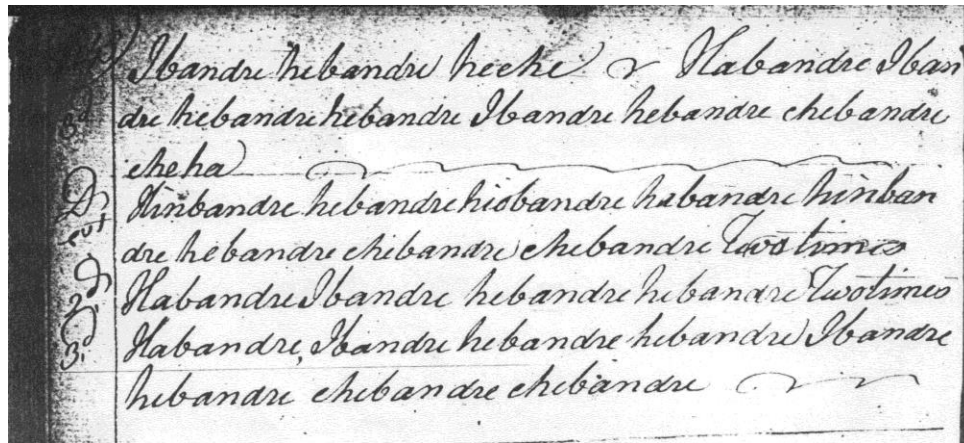 Ibandre hebandre heche Habandre Iban
3d dre hebandre hebandre Ibandre hebandre chebandre
cheha
D Hinbandre hebandre hiobandre hebandre hinban
dre hebandre chebandre chebandre Two times
2d Habandre Ibandre hebandre hebandre Two times
3d Habandre, Ibandre hebandre hebandre Ibandre
hebandre chebandre chebandre